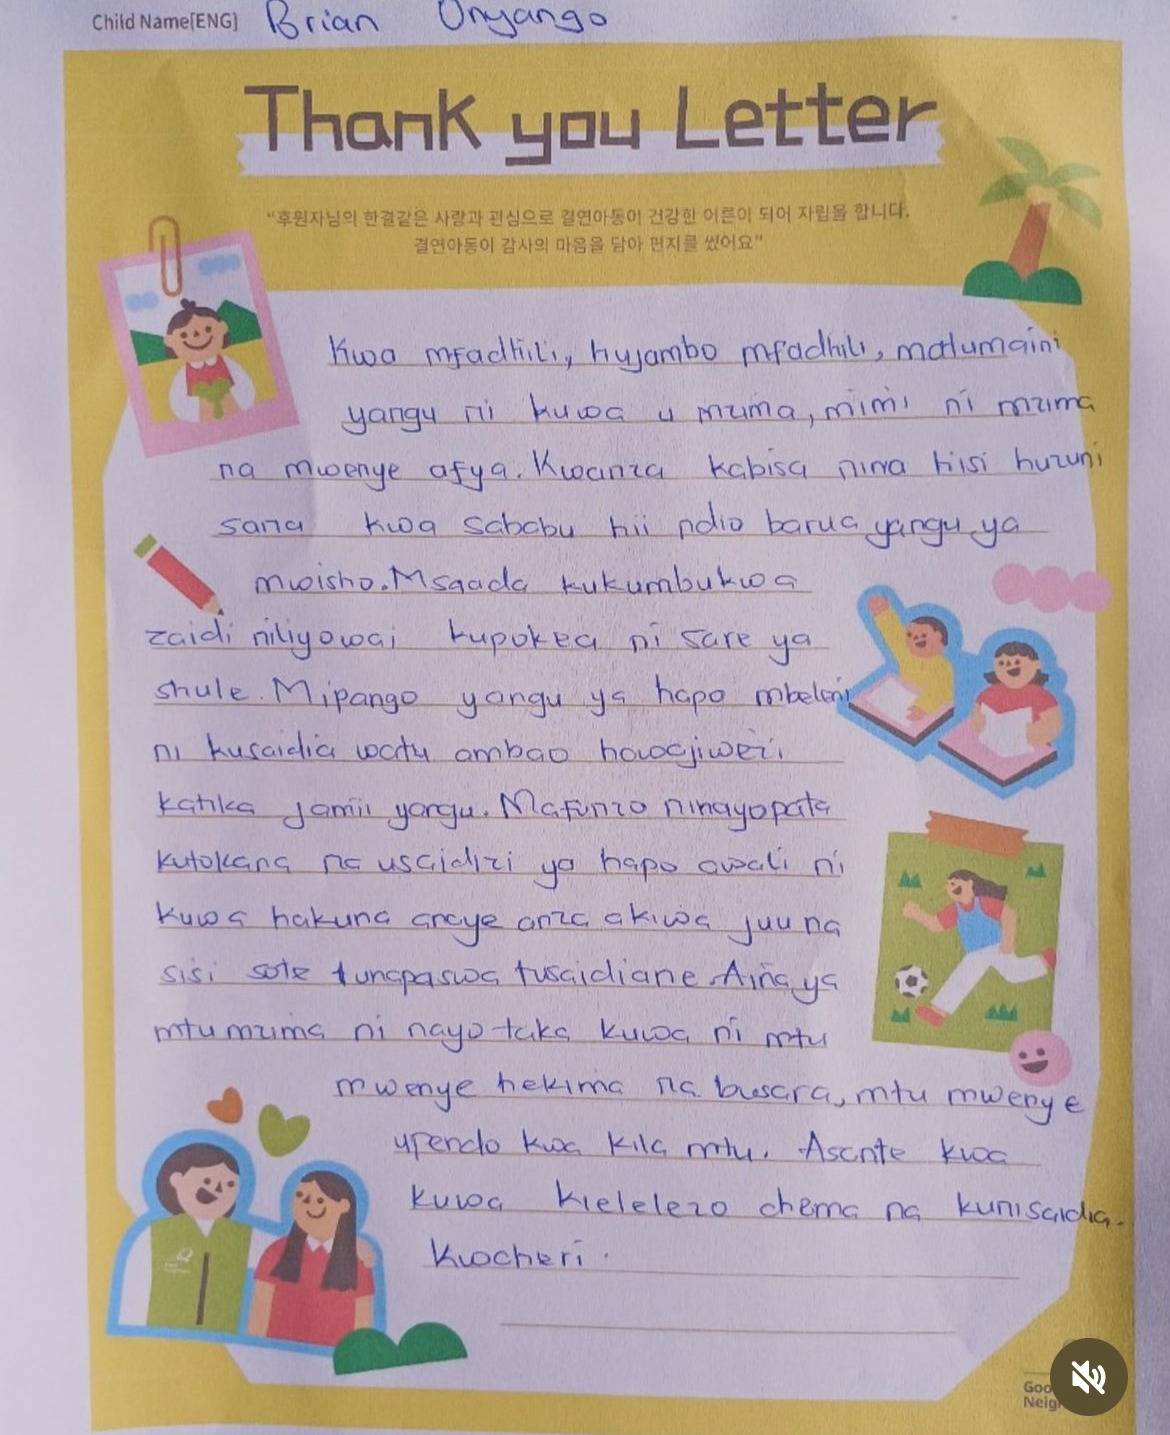 Child Name[ENG] Brian Onyango
Thank you Letter
“후원자님의 한결같은 사랑과 관심으로 결연아동이 건강한 어른이 되어 자립을 합니다.
결연아동이 감사의 마음을 담아 편지를 썼어요”
Kwa mfadhili, hujambo mfadhili, matumaini
yangu ni kuwa u mzima, mimi ni mzima
na mwenye afya. Kwanza kabisa nina hisi huzuni
sana kwa sababu hii ndio barua yangu ya
mwisho. Msaada kukumbukwa
zaidi niliyowai kupokea ni sare ya
shule. Mipango yangu ya hapo mbeleni
ni kusaidia watu ambao hawajiwezi
katika jamii yangu. Mafunzo ninayopata
kutokana na usaidizi ya hapo awali ni
kuwa hakuna anaye anza akiwa juu na
sisi sote tunapaswa tusaidiane. Aina ya
mtu mzima ni nayo taka kuwa ni mtu
mwenye hekima na busara, mtu mwenye
upendo kwa kila mtu. Asante kwa
kuwa kielelezo chema na kunisaidia.
Kwacheri.
Goo
Neig